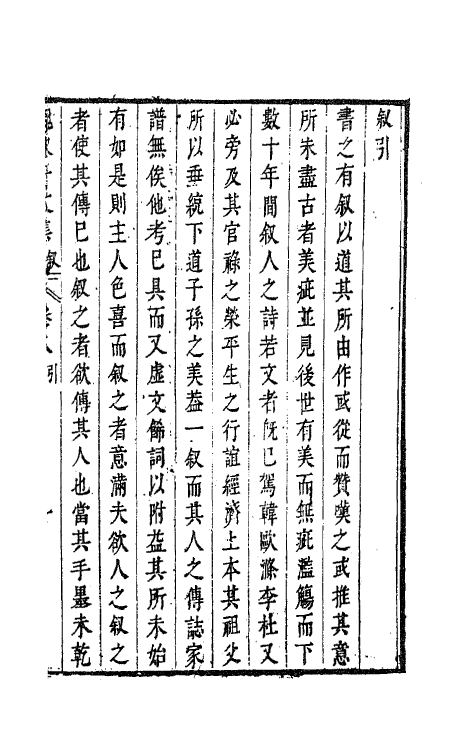 叙引
書之有叙以道其所由作或從而贊嘆之或推其意
所未盡古者美疵並見後世有美而無疵濫觴而下
數十年間叙人之詩若文者旣已駕韓歐滌李杜又
必旁及其官祿之榮平生之行誼經濟上本其祖父
所以垂統下道子孫之美葢一叙而其人之傳誌家
譜無俟他考已具而又虛文餙詞以附益其所未始
有如是則主人色喜而叙之者意滿夫欲人之叙之
者使其傳已也叙之者欲傳其人也當其手墨未乾
文集 叙 卷八引 一